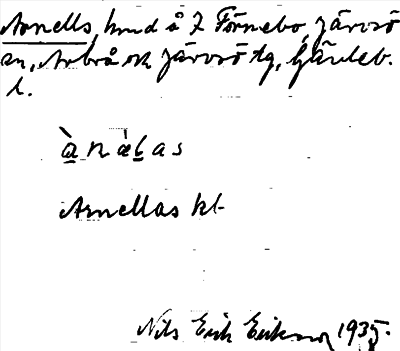 Arnells, hmd å 7 Förnebo, Järvsö
sn, Arbrå ok Järvsö tg, Gävleb.
l.
ànàłas
Arnellas kl-
Nils Erik Eriksson 1935.